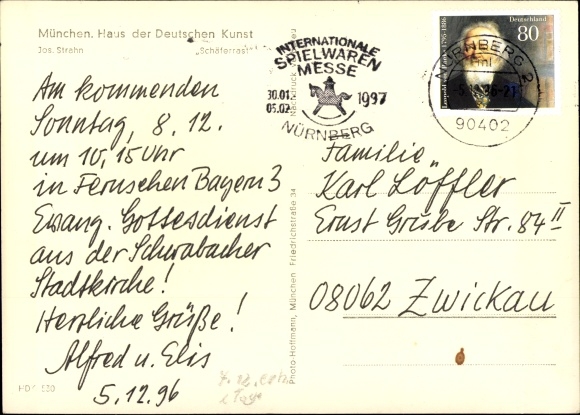 München, Haus der Deutschen Kunst
Jos. Strahn
Am kommenden
Sonntag, 8.12.
um 10,15 Uhr
in Fernsehen Bayern 3
Evang. Gottesdienst
aus der Schwabacher
Stadtkirche!
Herzliche Grüße!
Alfred u. Elis
5.12.96
Photo-Hoffmann, München Friedrichstraße 34
INTERNATIONALE
SPIELWAREN
MESSE
30.01.
05.02.
1997
NÜRNBERG
Deutschland
80
Leopold von Ranke 1795-1886
NÜRNBERG 2
90402
Familie
Karl Löffler
Ernst Grube Str. 84 II
08062 Zwickau